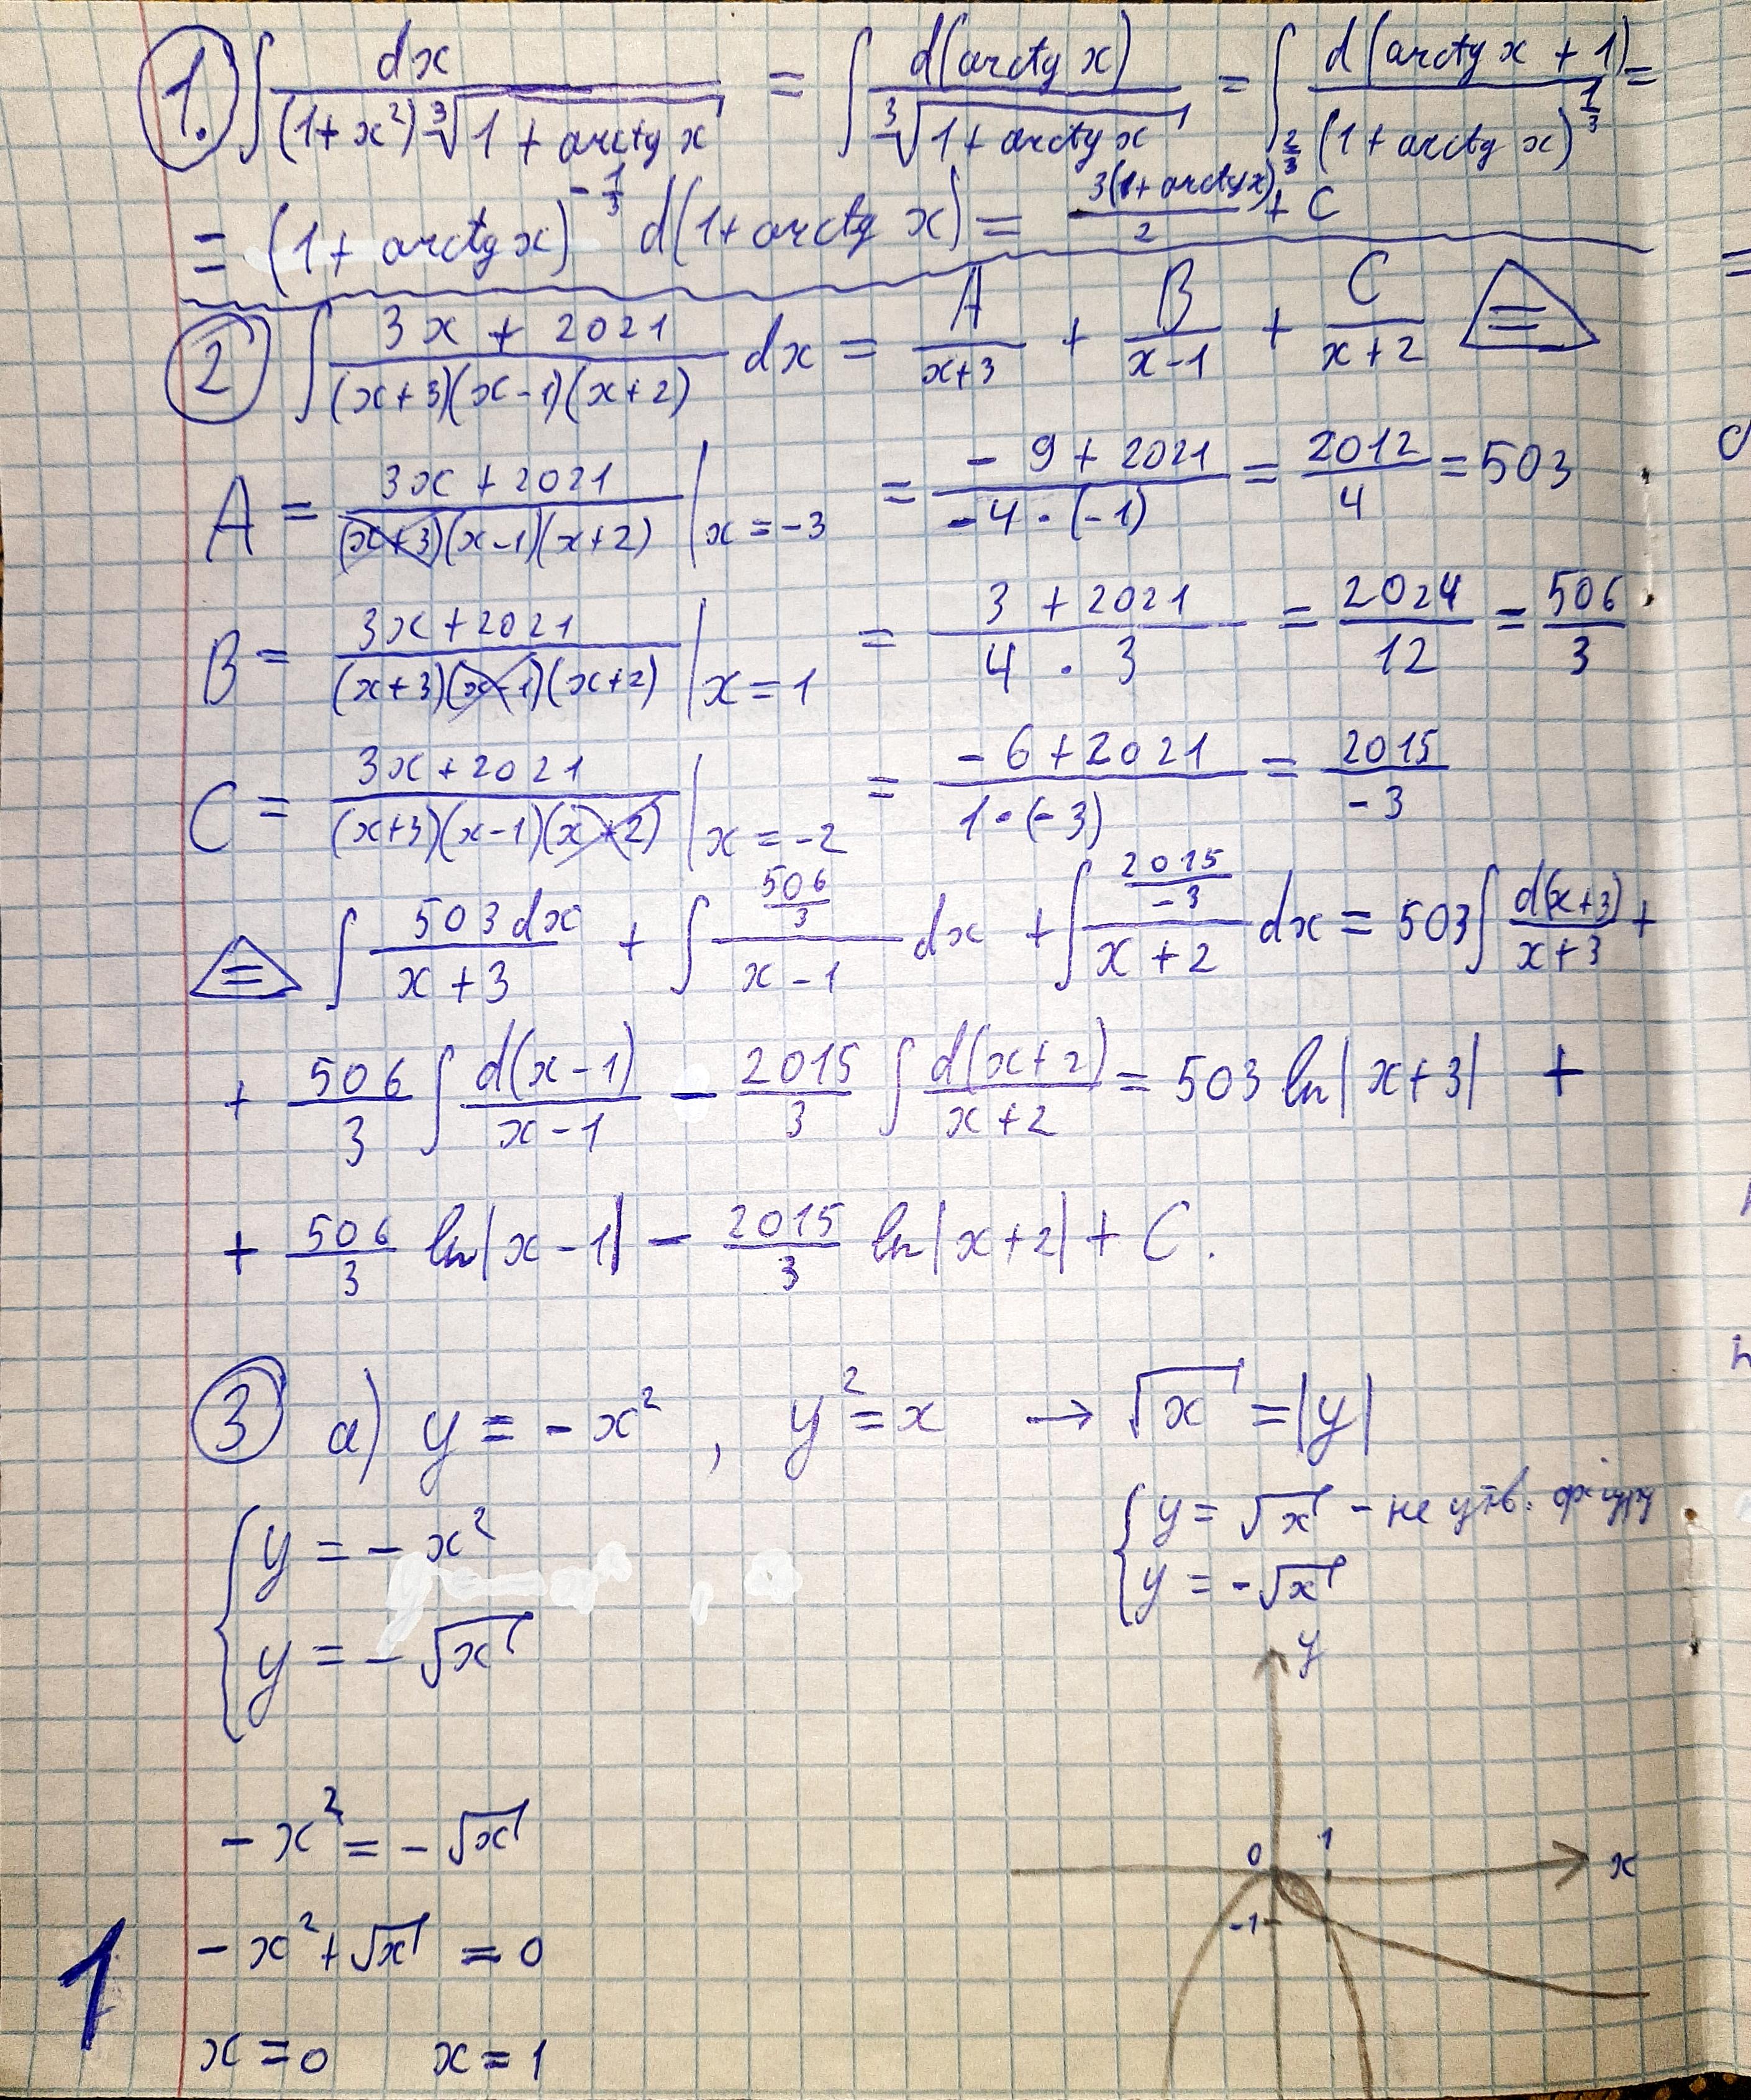 1. ∫ dx / ((1+x²) ∛(1 + arctg x)) = ∫ d(arctg x) / ∛(1 + arctg x) = ∫ d(arctg x + 1) / (1 + arctg x)^(1/3) =
= (1 + arctg x)^(-1/3) d(1 + arctg x) = 3(1 + arctg x)^(2/3) / 2 + C
2 ∫ (3x + 2021) / ((x+3)(x-1)(x+2)) dx = A/(x+3) + B/(x-1) + C/(x+2) =
A = (3x + 2021) / ((x+3)(x-1)(x+2)) | x = -3 = (-9 + 2021) / (-4 · (-1)) = 2012/4 = 503
B = (3x + 2021) / ((x+3)(x-1)(x+2)) | x = 1 = (3 + 2021) / (4 · 3) = 2024/12 = 506/3
C = (3x + 2021) / ((x+3)(x-1)(x+2)) | x = -2 = (-6 + 2021) / (1 · (-3)) = 2015/-3
= ∫ 503 dx / (x + 3) + ∫ (506/3) / (x - 1) dx + ∫ (2015/-3) / (x + 2) dx = 503 ∫ d(x+3) / (x+3) +
+ 506/3 ∫ d(x-1) / (x-1) - 2015/3 ∫ d(x+2) / (x+2) = 503 ln|x+3| +
+ 506/3 ln|x-1| - 2015/3 ln|x+2| + C.
3 a) y = -x², y² = x → √x = |y|
{ y = -x²
y = -√x
{ y = √x - не утв. фигуру
y = -√x
y
-x² = -√x
0 1 x
-1
-x² + √x = 0
1
x = 0 x = 1